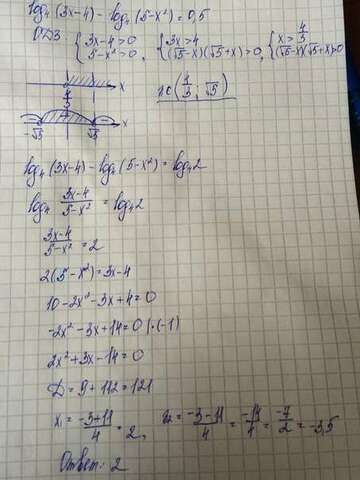 log₄(3x-4) - log₄(5-x²) = 0,5
ОДЗ { 3x-4>0 5-x²>0 , { 3x>4 (√5-x)(√5+x)>0 , { x>4/3 (√5-x)(√5+x)>0
x
4/3
x∈(4/3; √5)
- + -
-√5 √5 x
log₄(3x-4) - log₄(5-x²) = log₄2
log₄ (3x-4)/(5-x²) = log₄2
(3x-4)/(5-x²) = 2
2(5-x²)=3x-4
10-2x²-3x+4=0
-2x²-3x+14=0 |·(-1)
2x²+3x-14=0
D=9+112=121
x₁ = (-3+11)/4 = 2, x₂ = (-3-11)/4 = -14/4 = -7/2 = -3,5
Ответ: 2